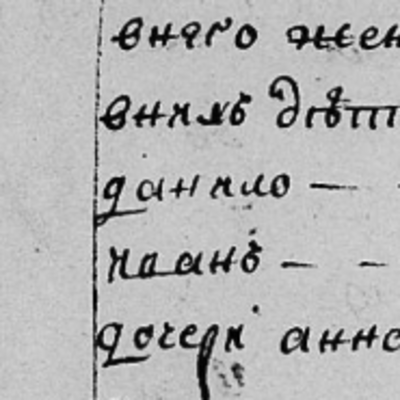 внего жен
внихъ дѣт
данило — -
иванъ — -
дочери анна